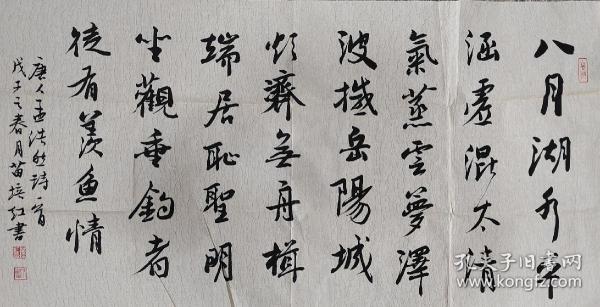 八月湖水平
涵虚混太清
氣蒸雲夢澤
波撼岳陽城
欲濟無舟楫
端居耻聖明
坐觀垂釣者
徒有羨魚情
唐人孟浩然詩一首
戊子之春月苗培红書
孔夫子旧书网
www.kongfz.com